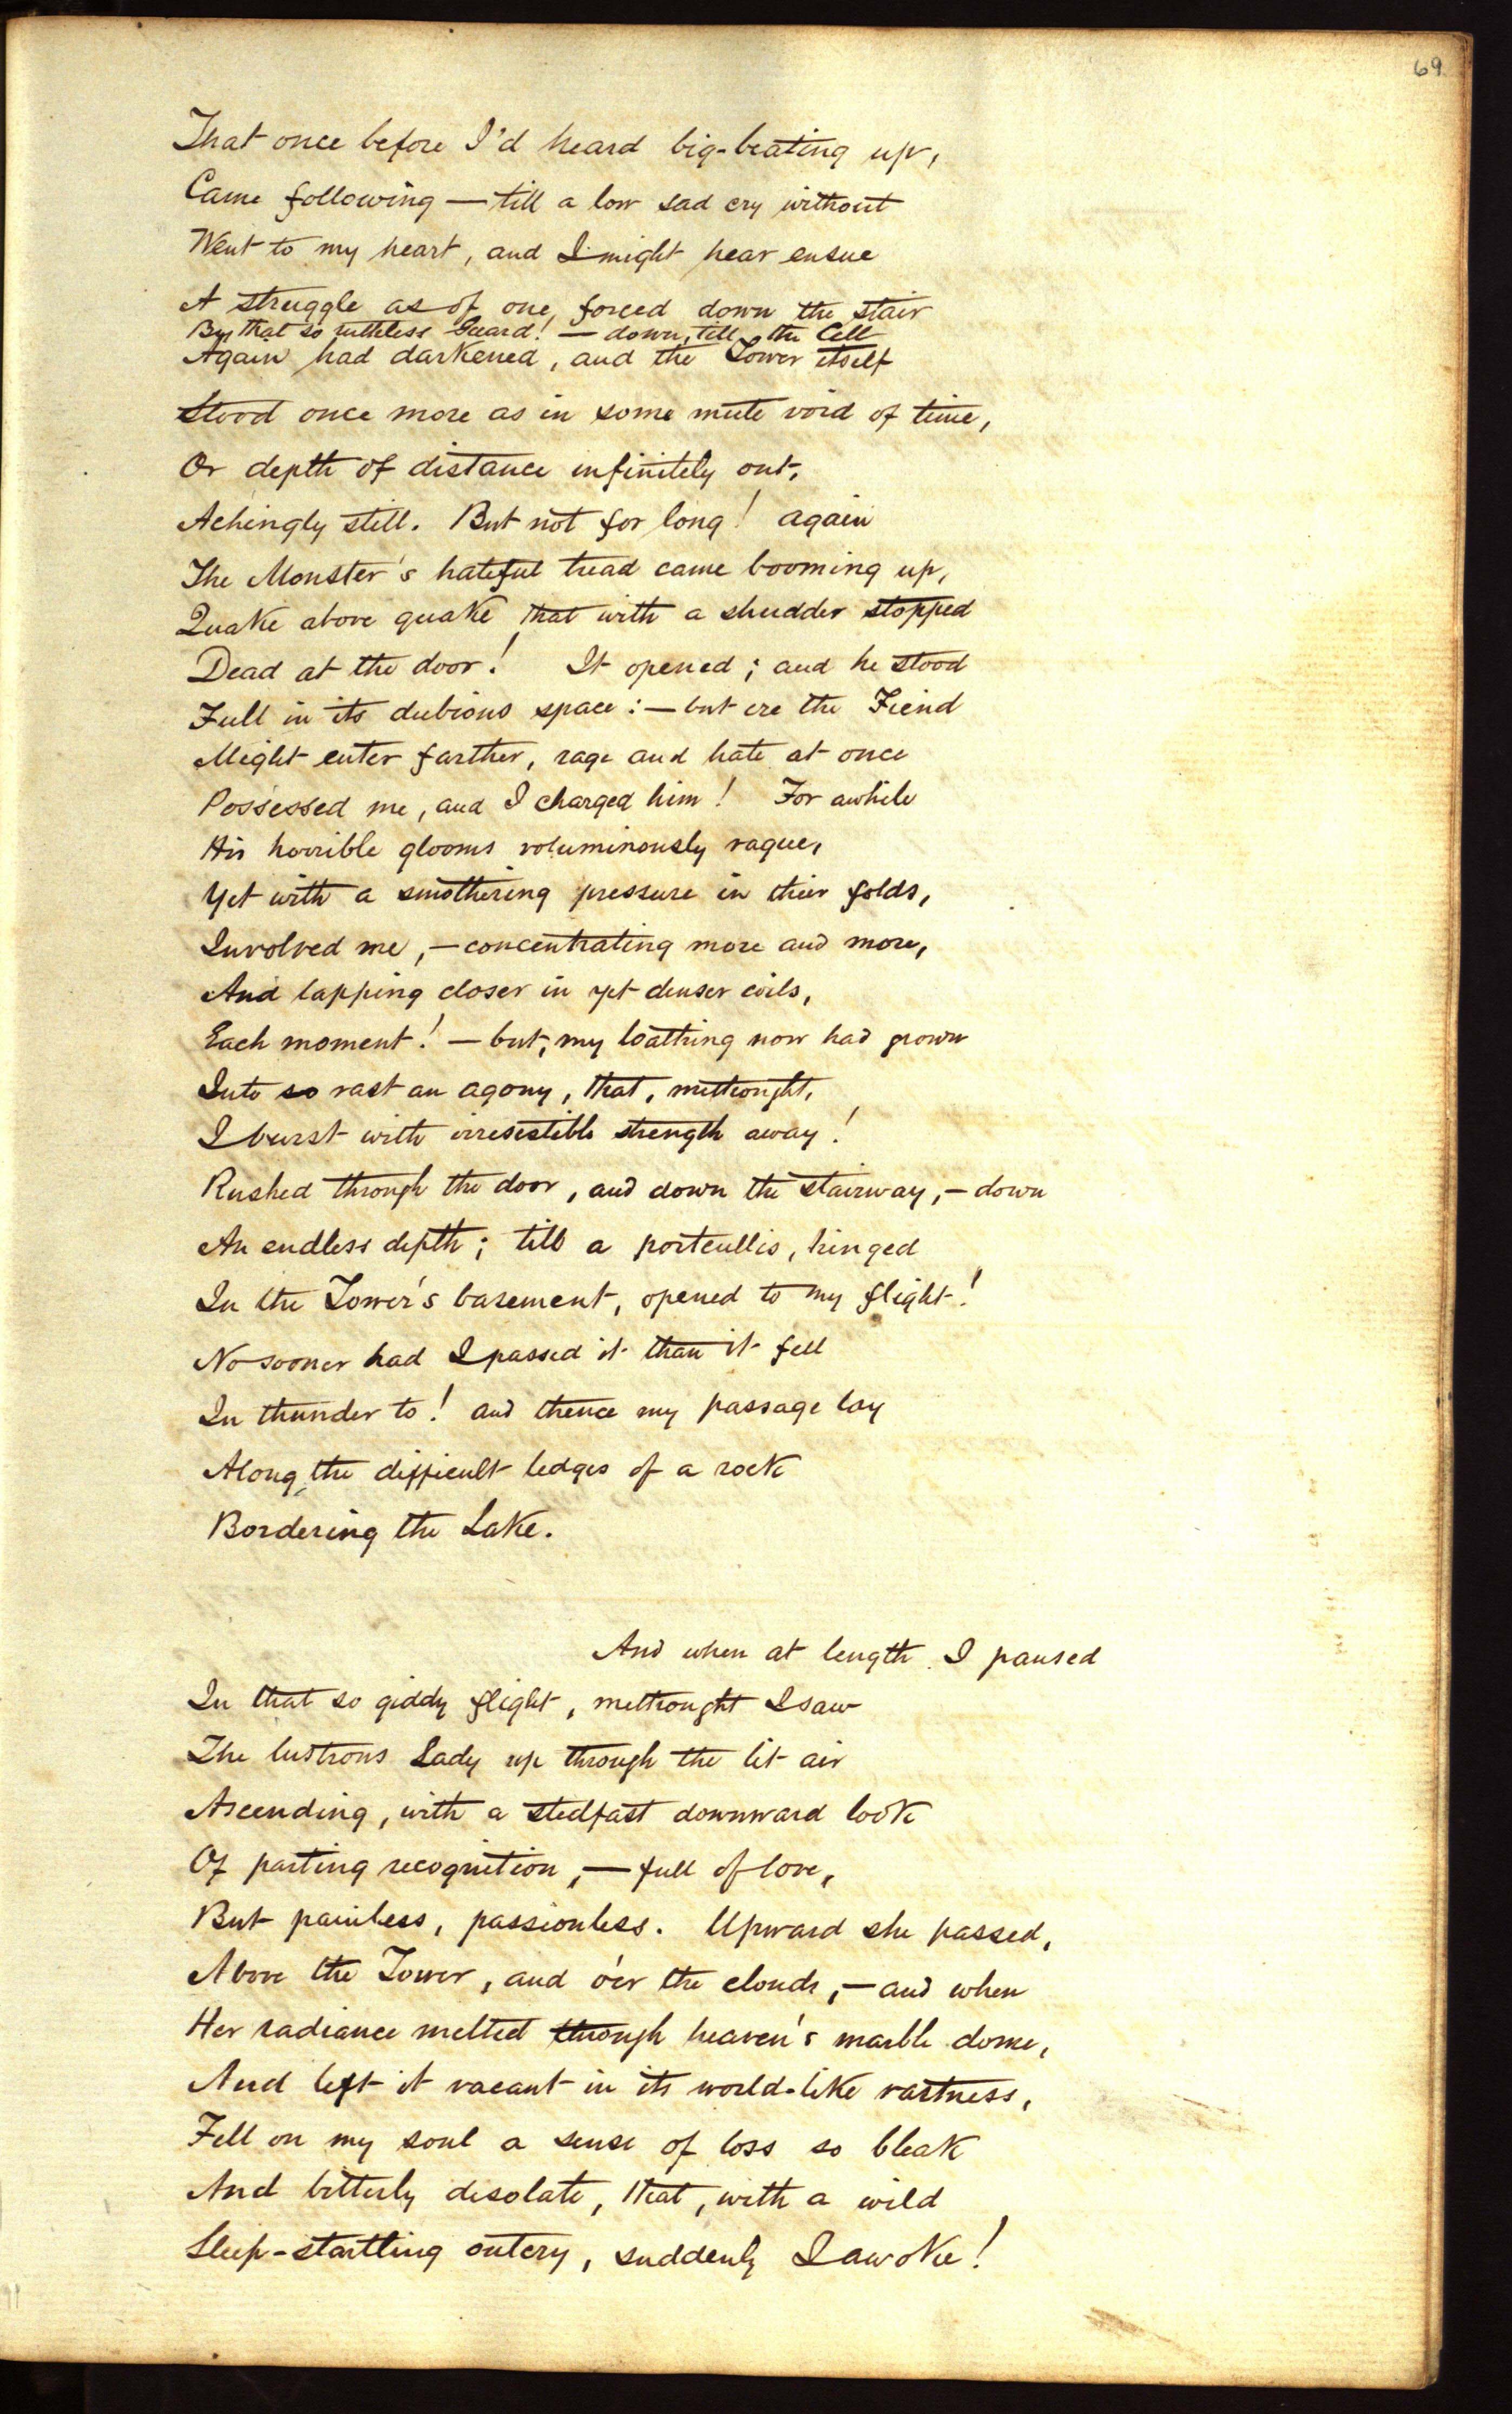 69
That once before I'd heard big-beating up,
Came following — till a low sad cry without
Went to my heart, and I might hear ensue
A struggle as of one, forced down the stair
By that so ruthless Guard! — down, till the Cell
Again had darkened, and the Tower itself
Stood once more as in some mute void of time,
Or depth of distance infinitely out,
Achingly still. But not for long! again
The Monster's hateful tread came booming up,
Quake above quake, that with a shudder stopped
Dead at the door! It opened; and he stood
Full in its dubious space: — but ere the Fiend
Might enter farther, rage and hate at once
Possessed me, and I charged him! For awhile
His horrible glooms voluminously vague,
Yet with a smothering pressure in their folds,
Involved me, — concentrating more and more,
And lapping closer in yet denser coils,
Each moment! — but, my loathing now had grown
Into so vast an agony, that, methought,
I burst with irresistible strength away!
Rushed through the door, and down the stairway, — down
An endless depth; till a portcullis, hinged
In the Tower's basement, opened to my flight!
No sooner had I passed it than it fell
In thunder to! and thence my passage lay
Along the difficult ledges of a rock
Bordering the Lake.
And when at length I paused
In that so giddy flight, methought I saw
The lustrous Lady up through the lit air
Ascending, with a stedfast downward look
Of parting recognition, — full of love,
But painless, passionless. Upward she passed,
Above the Tower, and o'er the clouds, — and when
Her radiance melted through heaven's marble dome,
And left it vacant in its world-like vastness,
Fell on my soul a sense of loss so bleak
And bitterly desolate, that, with a wild
Sleep-startling outcry, suddenly I awoke!